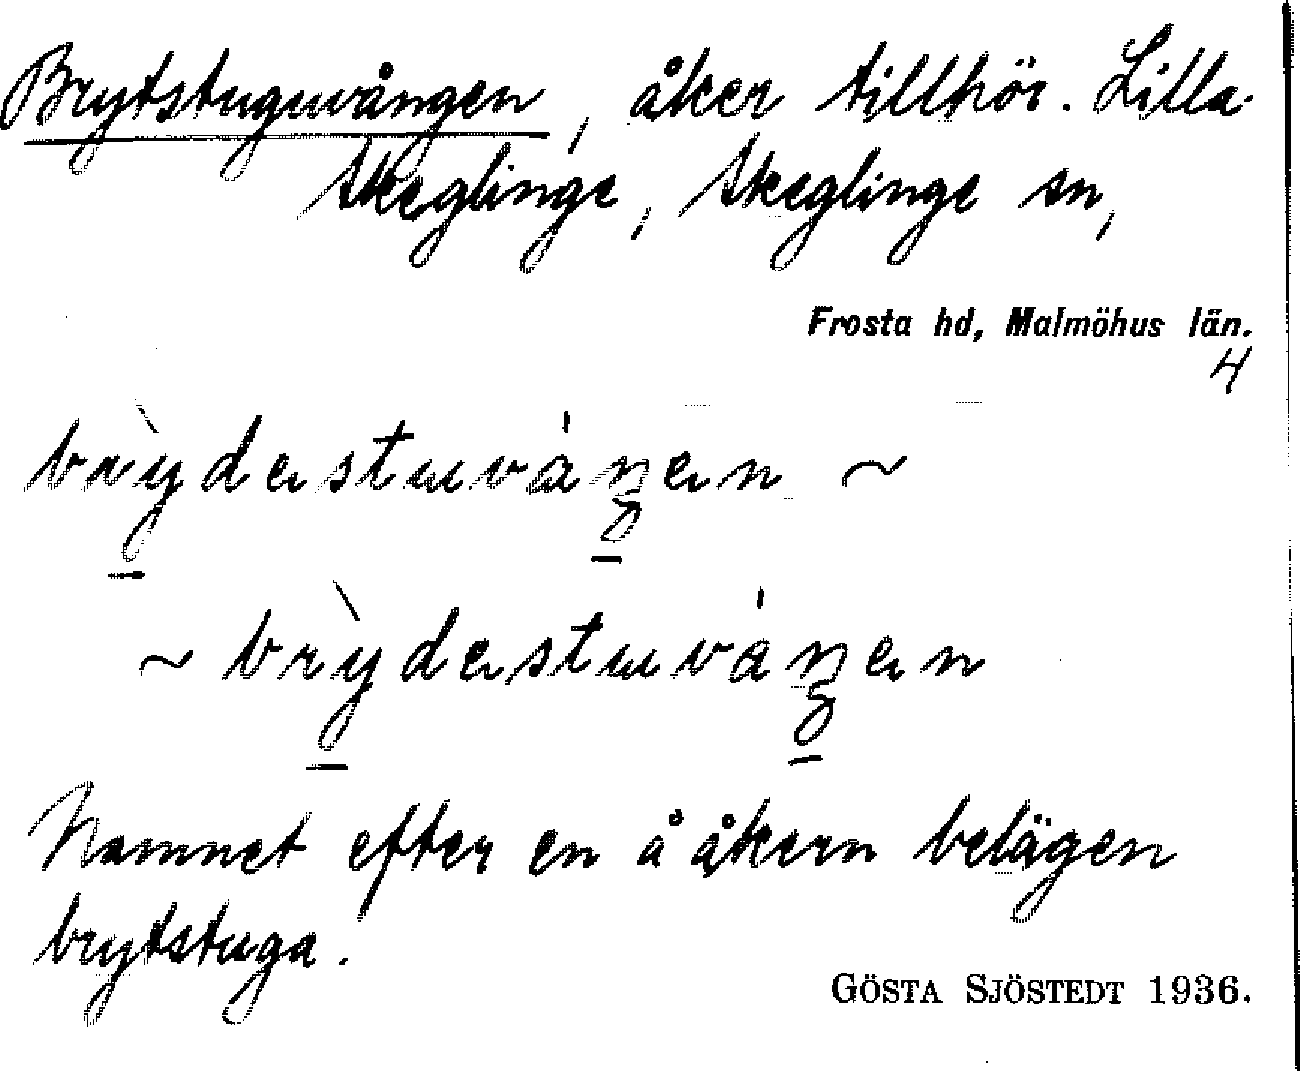 Brytstuguvången, åker tillhör. Lilla
Skeglinge, Skeglinge sn,
Frosta hd, Malmöhus län.
4
brỳdestuvåŋen ~
~ brỳdestuvåŋen
Namnet efter en å åkern belägen
brytstuga.
GÖSTA SJÖSTEDT 1936.